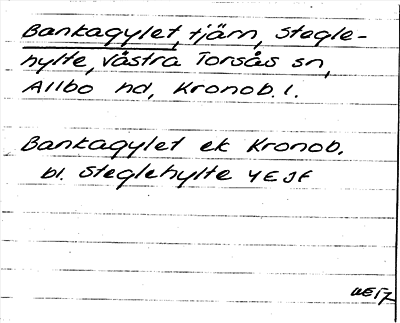 Bankagylet, tjärn, Stegle-
hylte, västra Torsås sn,
Allbo hd, Kronob. l.
Bankagylet ek Kronob.
bl. Steglehylte 4EJF